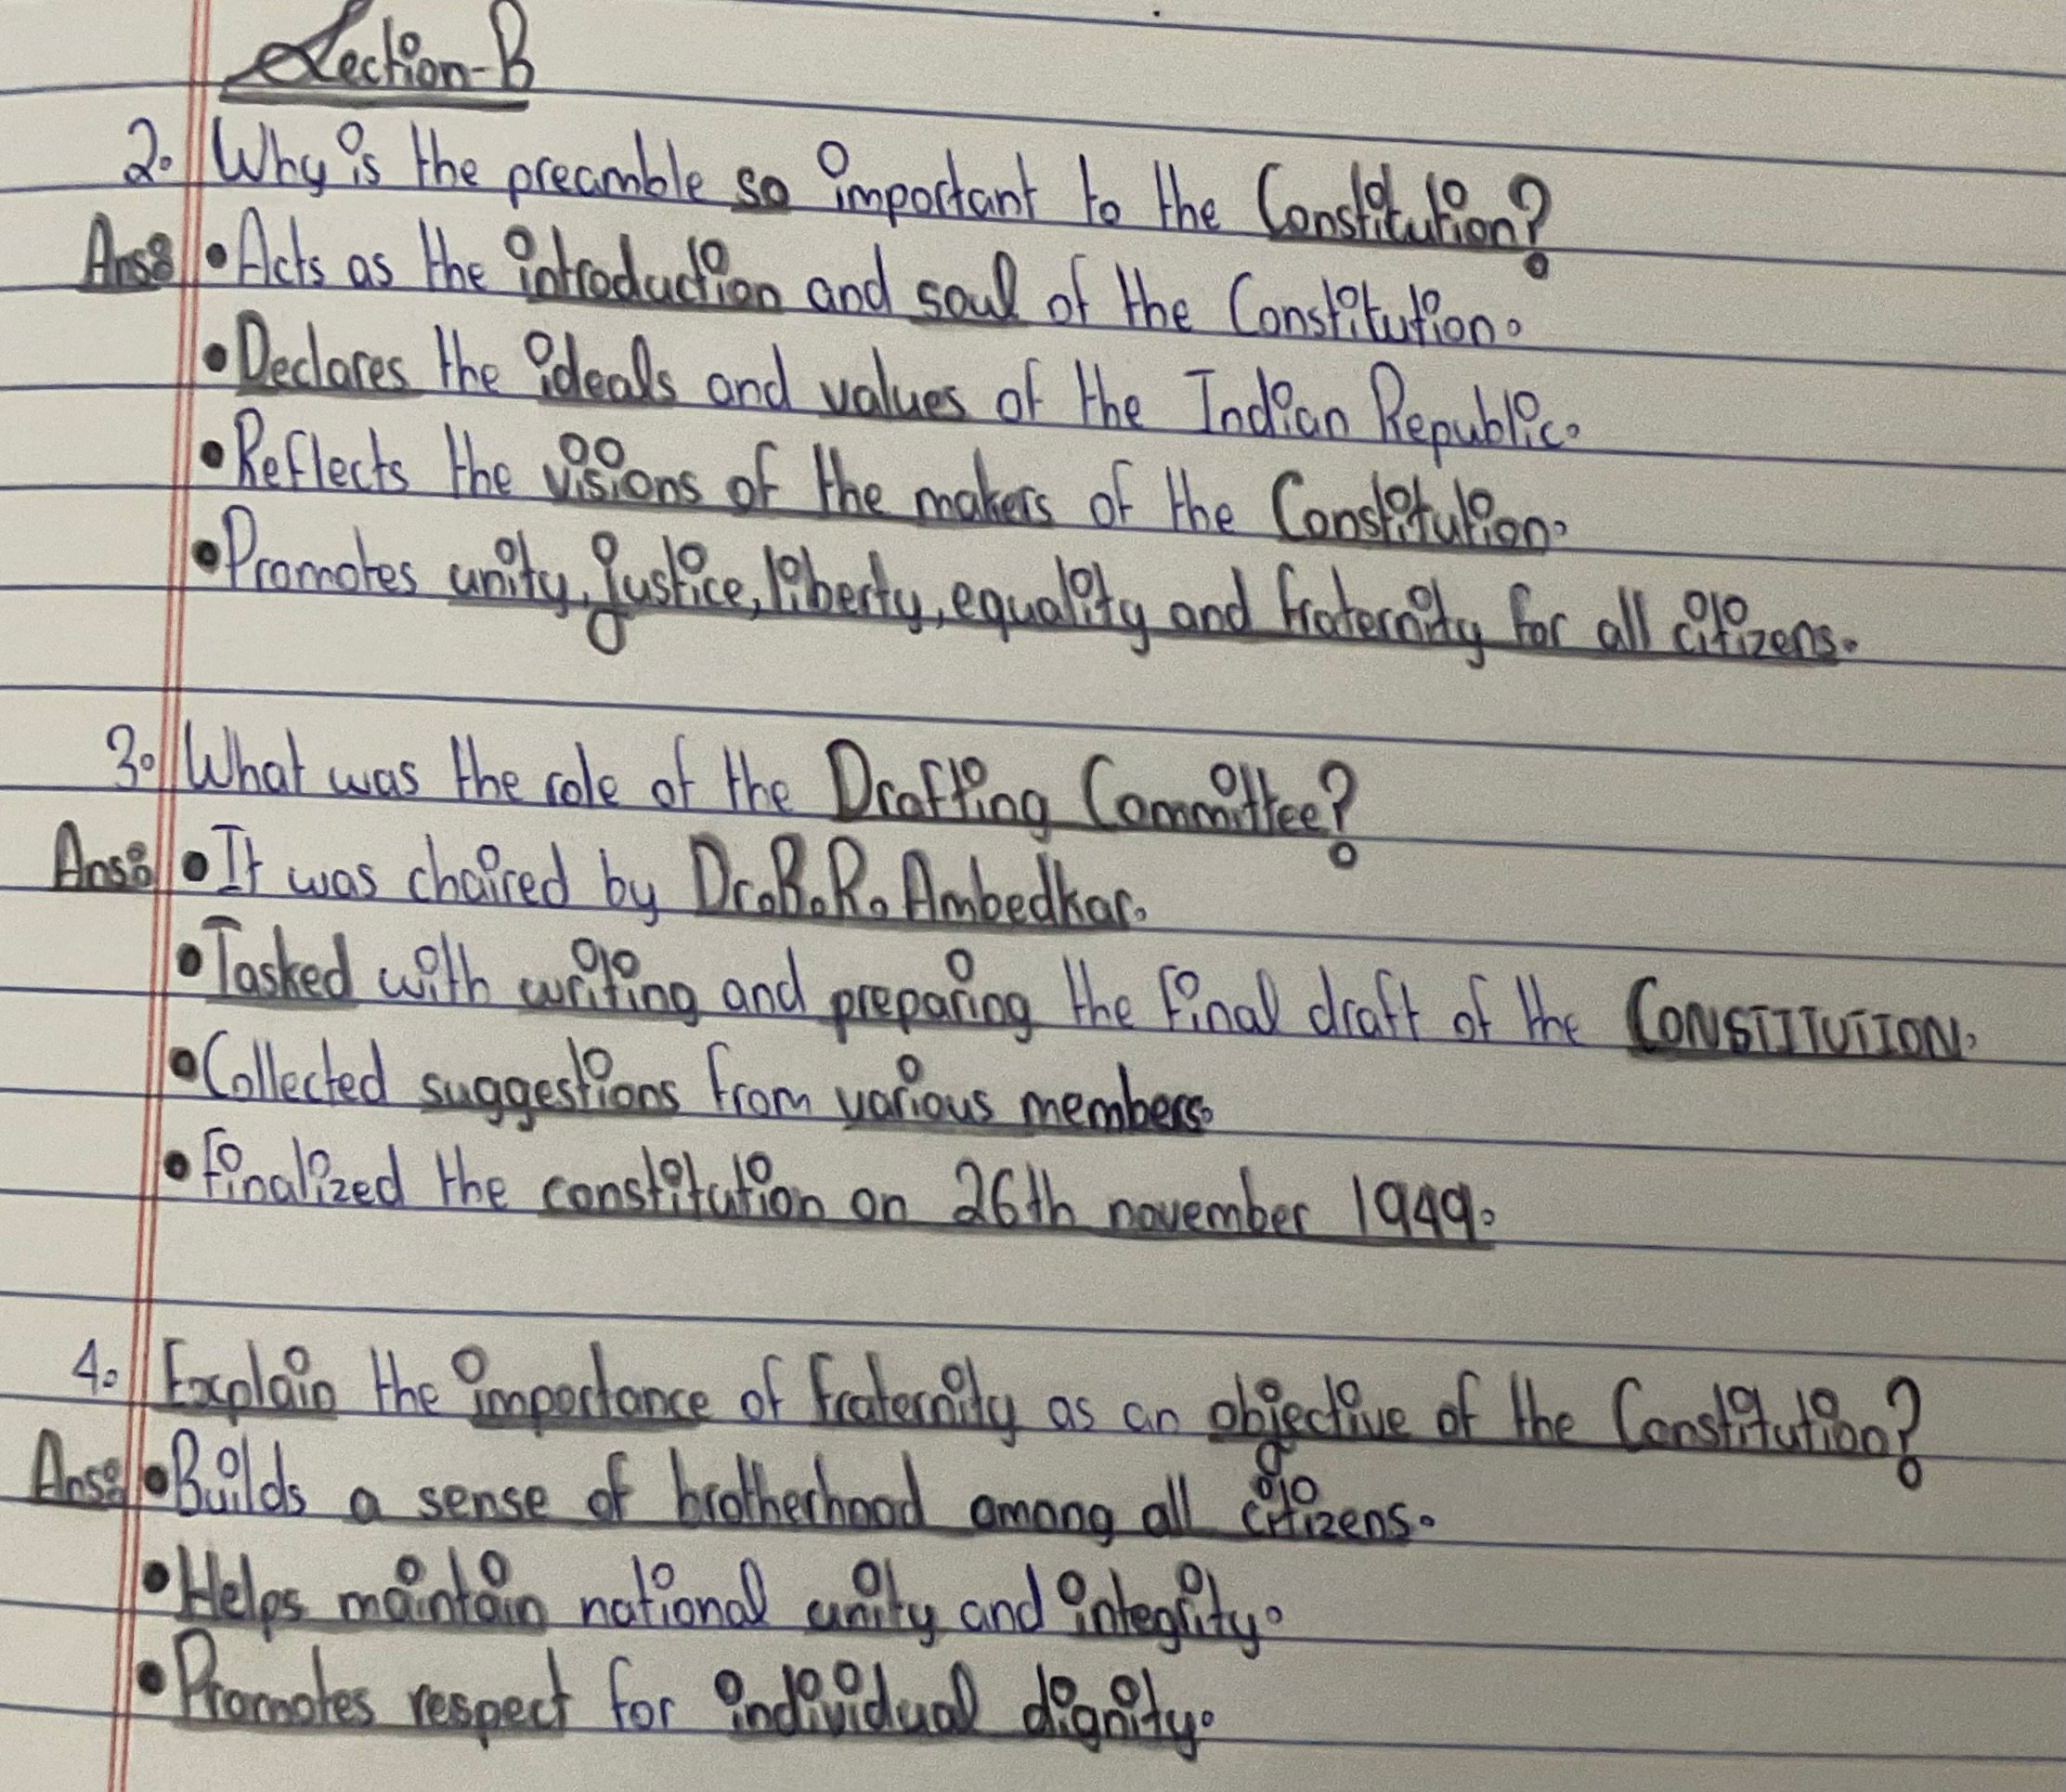 Section-B
2. Why is the preamble so important to the Constitution?
Ans: • Acts as the introduction and soul of the Constitution.
• Declares the ideals and values of the Indian Republic.
• Reflects the visions of the makers of the Constitution.
• Promotes unity, justice, liberty, equality and fraternity for all citizens.
3. What was the role of the Drafting Committee?
Ans: • It was chaired by Dr. B. R. Ambedkar.
• Tasked with writing and preparing the final draft of the CONSTITUTION.
• Collected suggestions from various members.
• Finalized the constitution on 26th november 1949.
4. Explain the importance of fraternity as an objective of the Constitution?
Ans: • Builds a sense of brotherhood among all citizens.
• Helps maintain national unity and integrity.
• Promotes respect for individual dignity.